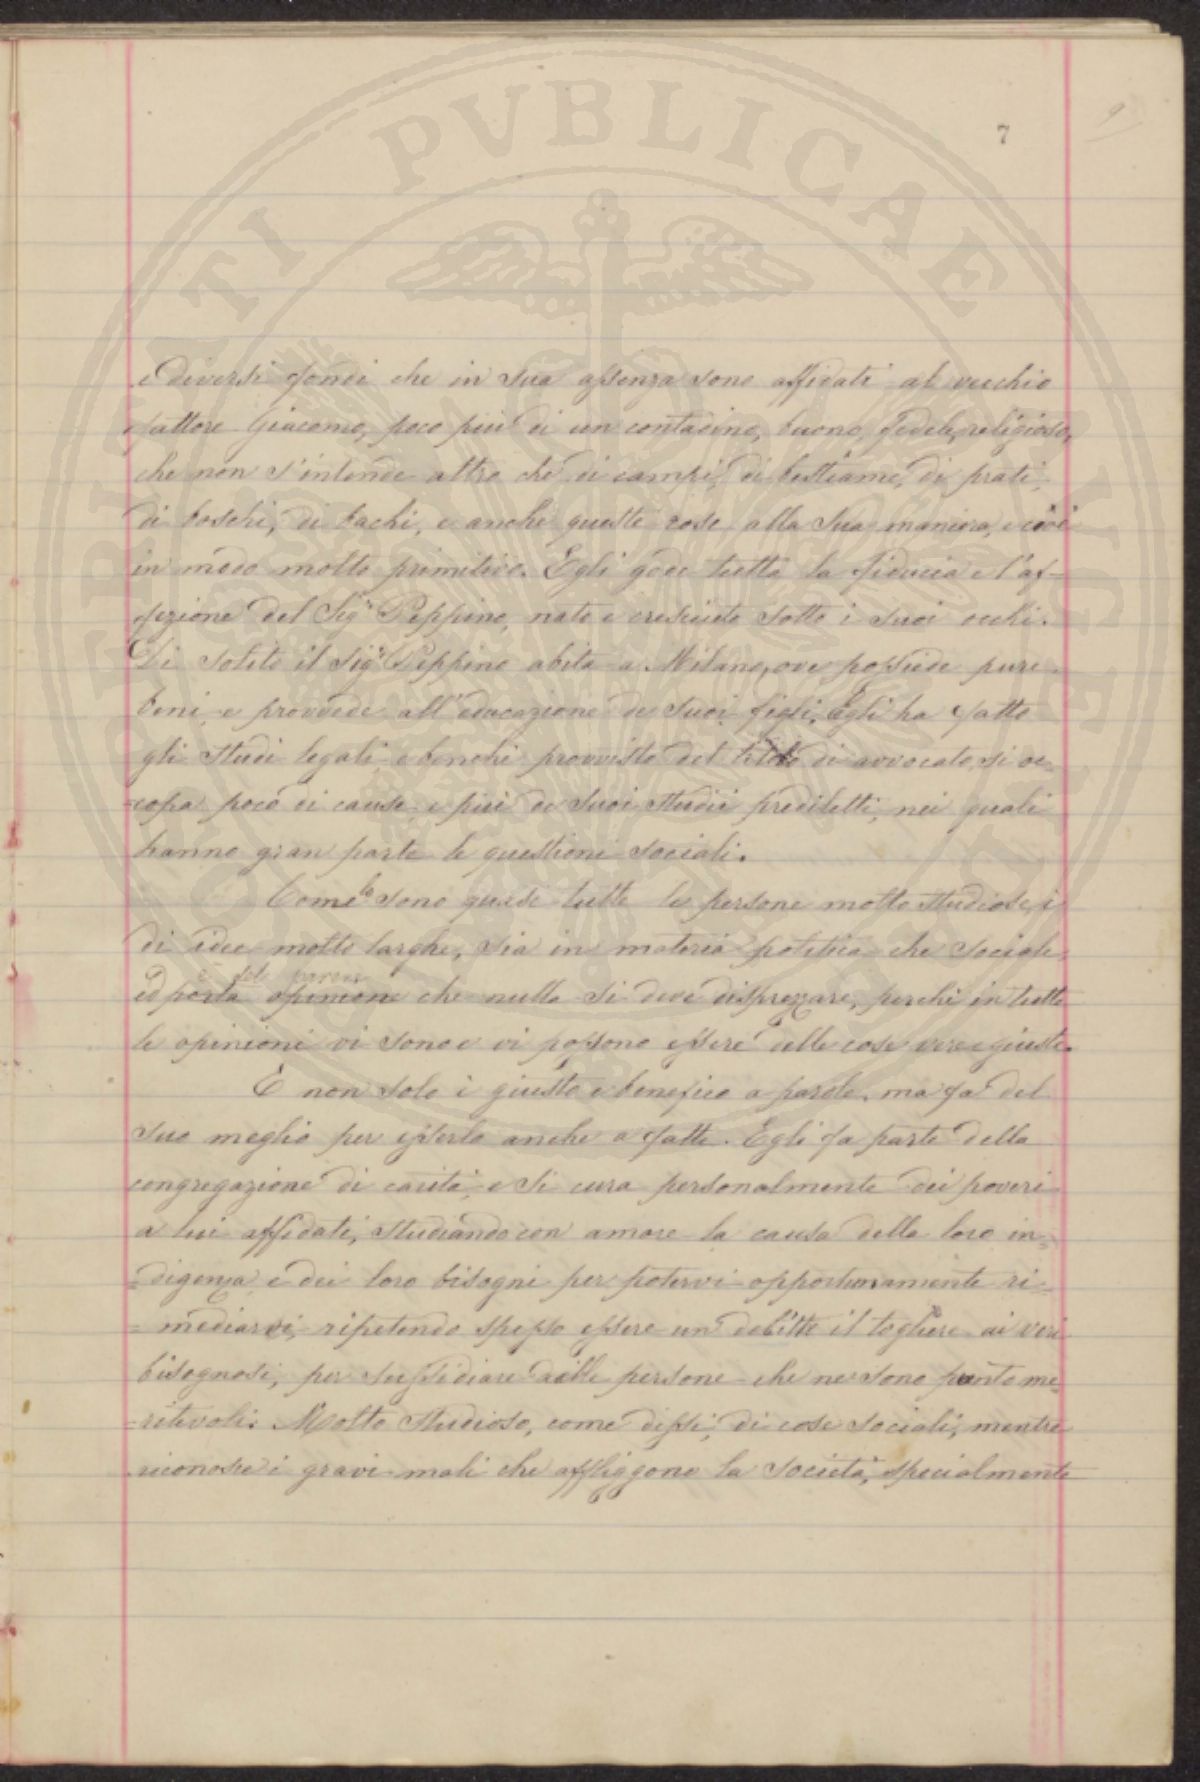 7
9
e diversi fondi che in sua assenza sono affidati al vecchio
fattore Giacomo, poco più di un contadino, buono, fedele, religioso,
che non s'intende altro che di campi, di bestiame, di prati,
di boschi, di bachi, e anche queste cose alla sua maniera, e cioè
in modo molto primitivo. Egli gode tutta la fiducia e l'af-
fezione del Sigr Peppino, nato e cresciuto sotto i suoi occhi.
Di solito il Sigr Peppino abita a Milano, ove possiede pure
beni, e provvede all'educazione de suoi figli. Egli ha fatto
gli studi legali, e benchè provvisto del titolo di avvocato, si oc-
-cupa poco di cause, e più de suoi studii prediletti, nei quali
hanno gran parte le questioni sociali.
Come lo sono quasi tutte le persone molto studiose, è
di idee molto larghe, sia in materia politica che sociale,
è del parere
ed porta opinione che nulla si deve disprezzare, perchè in tutte
le opinioni vi sono e vi possono essere delle cose vere e giuste.
E non solo è giusto e benefico a parole, ma fa del
suo meglio per esserlo anche a fatti. Egli fa parte della
congregazione di carità, e si cura personalmente dei poveri
a lui affidati, studiando con amore la causa della loro in-
-digenza e dei loro bisogni per potervi opportunamente ri-
-mediarvi, ripetendo spesso essere un delitto il togliere ai veri
bisognosi, per sussidiare delle persone che ne sono punto me-
-ritevoli. Molto studioso, come dissi, di cose sociali, mentre
riconosce i gravi mali che affliggono la società, specialmente
PVBLICAE